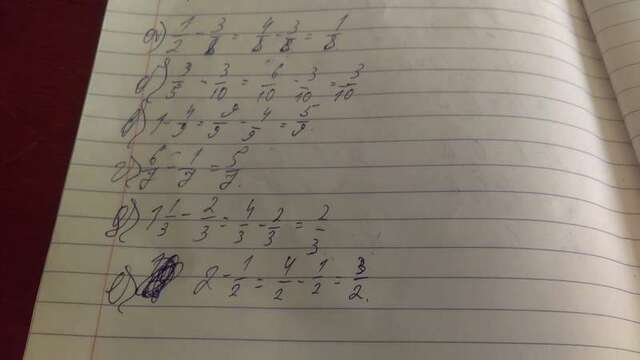 а) 1/2 - 3/8 = 4/8 - 3/8 = 1/8
б) 3/5 - 3/10 = 6/10 - 3/10 = 3/10
в) 1 - 4/9 = 9/9 - 4/9 = 5/9.
г) 6/7 - 1/7 = 5/7.
д) 1 1/3 - 2/3 = 4/3 - 2/3 = 2/3
е) 2 - 1/2 = 4/2 - 1/2 = 3/2.